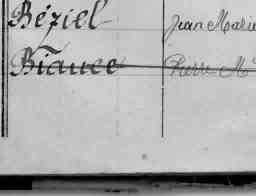 Béziel Jean Marie
Biance Pierre M